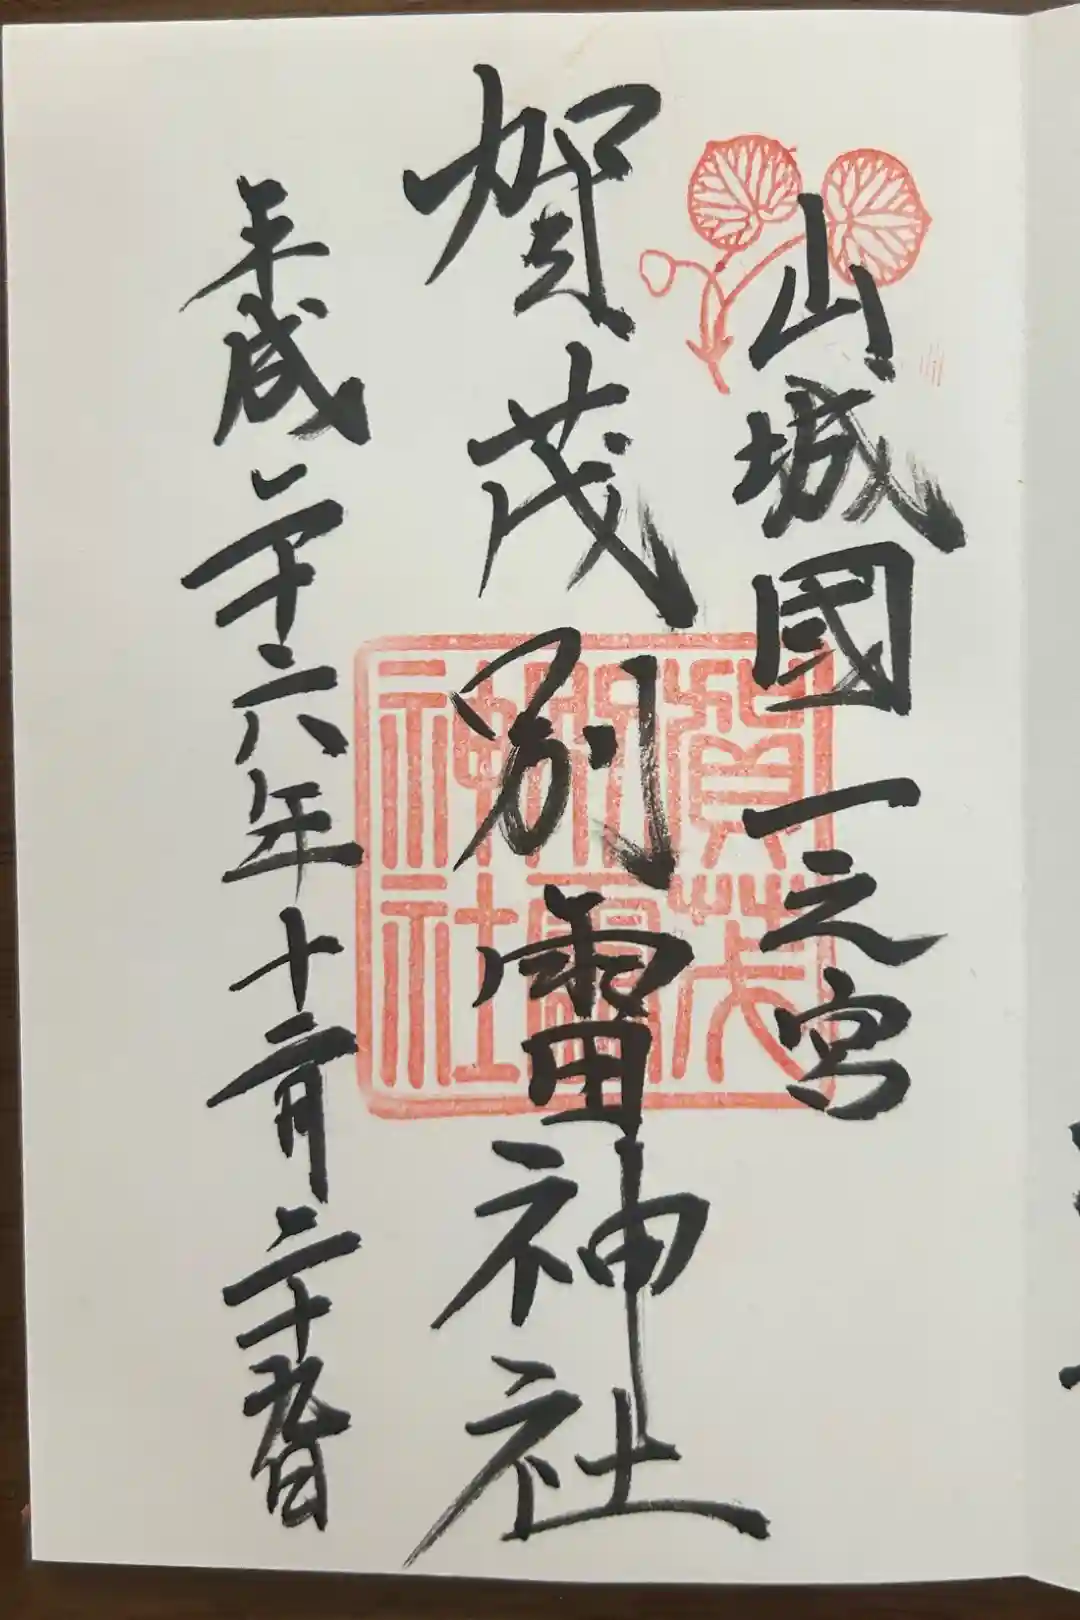 山城國一之宮
賀茂別雷神社
平成二十六年十二月二十九日
賀茂
別雷
神社